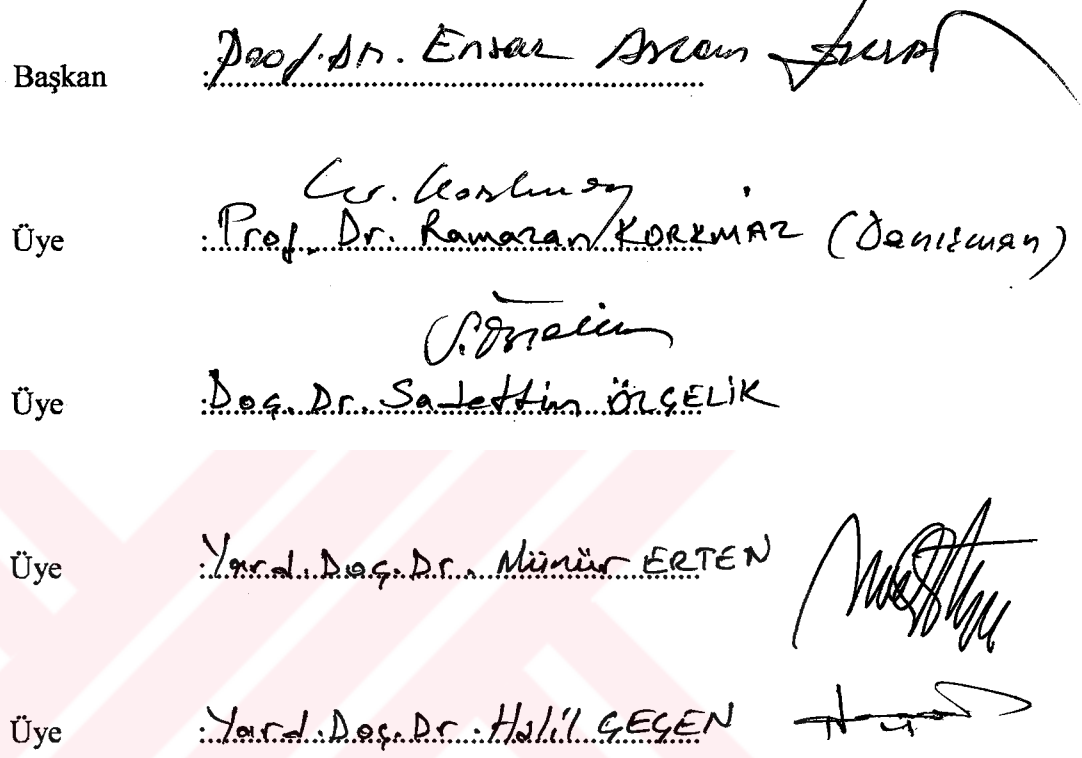 Başkan : Prof. Dr. Ensar Aslan
Üye : Prof. Dr. Ramazan KORKMAZ (Danışman)
Üye : Doç. Dr. Sadettin ÖZÇELİK
Üye : Yard. Doç. Dr. Münür ERTEN
Üye : Yard. Doç. Dr. Halil ÇEÇEN